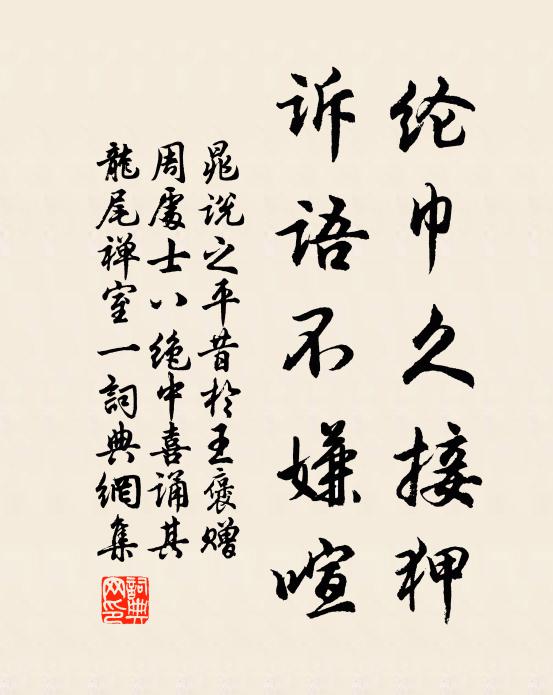 纶巾久接狎
诉语不嫌喧
晁说之平昔於王褒赠
周处士八绝中喜诵其
龍尾禅室一詞典網集
詞典網印